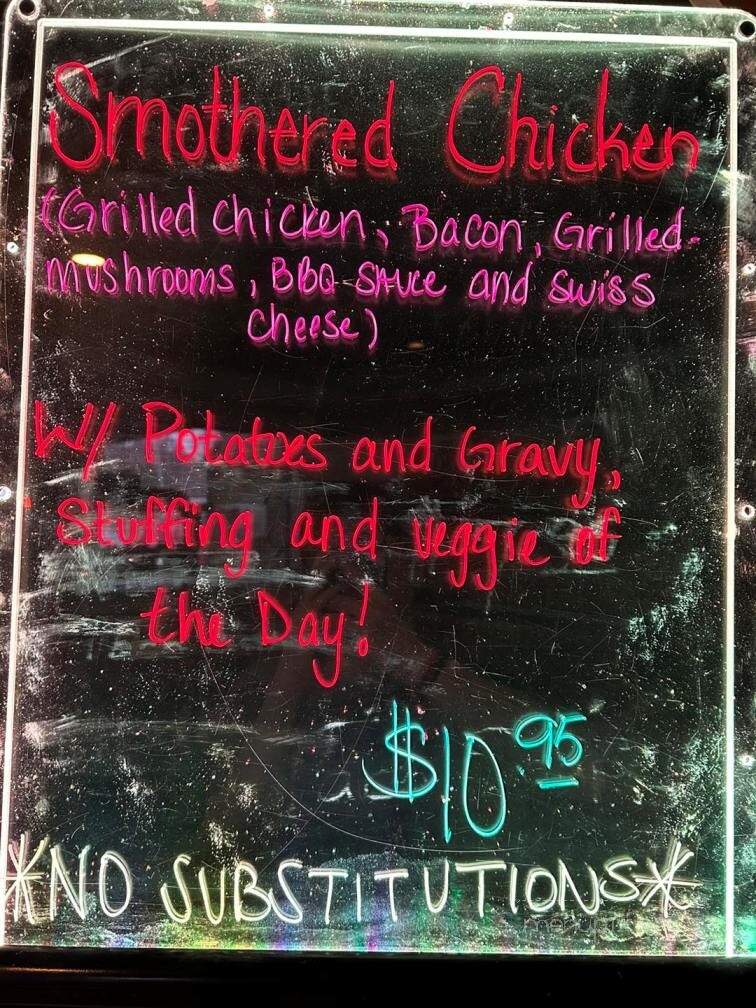 Smothered Chicken
(Grilled chicken, Bacon, Grilled-
mushrooms, BBQ Sauce and Swiss
Cheese)
W/ Potatoes and Gravy,
Stuffing and veggie of
the Day!
$10.95
*NO SUBSTITUTIONS*